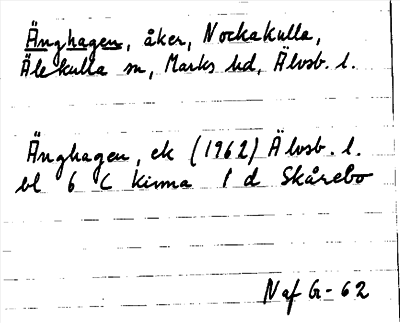 Änghagen, åker, Nockakulla,
Älekulla sn, Marks hd, Älvsb. l.
Änghagen, ek (1962) Älvsb. l.
bl 6 C Kinna 1 d Skårebo
Naf G-62